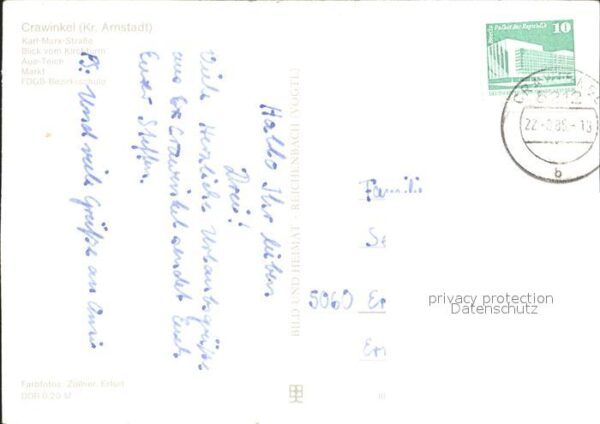 Crawinkel (Kr. Arnstadt)
Karl-Marx-Straße
Blick vom Kirchturm
Aue-Teich
Markt
FDGB-Bezirksschule
Hallo Ihr lieben
Drei!
Viele Herzliche Urlaubsgrüße
aus Crawinkel sendet Euch
Euer Steffen.
PS: Und viele Grüße an
BILD UND HEIMAT REICHENBACH (VOGTL)
Berlin Palast der Republik
10
DDR
22
13
b
Familie
Se
5060 Er
Er
privacy protection
Datenschutz
Farbfotos: Zöllner, Erfurt
DDR 0,20 M